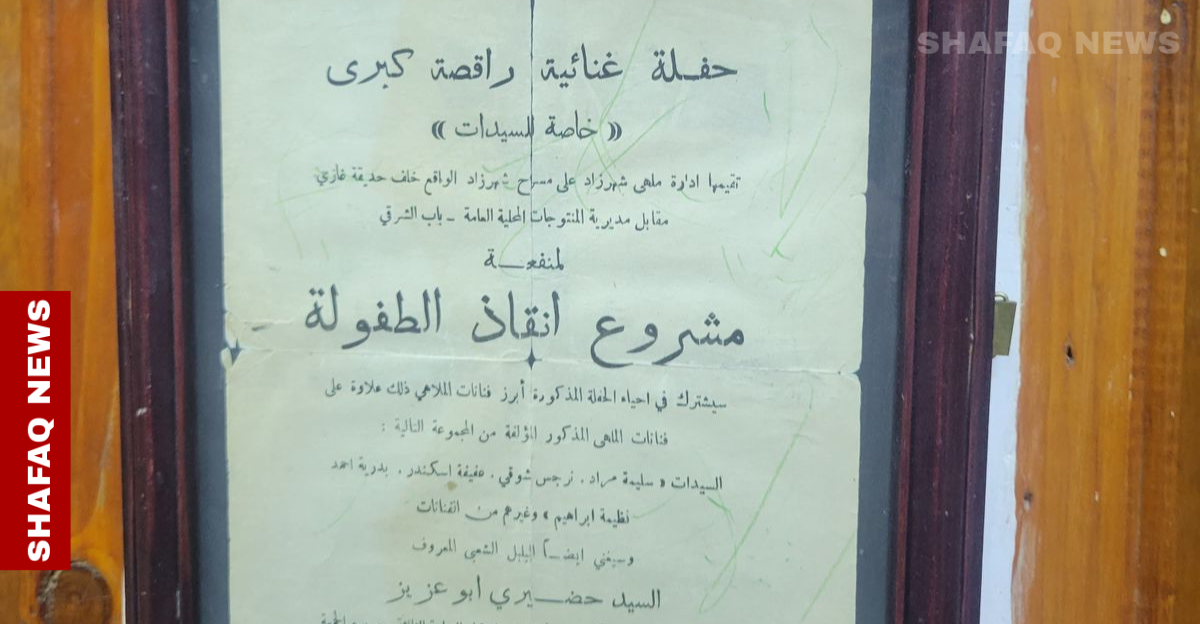 SHAFAQ NEWS
حفلة غنائية راقصة كبرى
(( خاصة للسيدات ))
تقيمها ادارة ملهى شهرزاد على مسرح شهرزاد الواقع خلف حديقة غازي
مقابل مديرية المنتوجات المحلية العامة ـ باب الشرقي
لمنفعة
مشروع انقاذ الطفولة
سيشترك في احياء الحفلة المذكورة أبرز فنانات الملاهي ذلك علاوة على
فنانات الملهى المذكور المؤلفة من المجموعة التالية :
السيدات « سليمة مراد . نرجس شوقي . عفيفة اسكندر . بدرية احمد
نظيمة ابراهيم » وغيرهم من الفنانات
وسيغني ايضاً البلبل الشعبي المعروف
السيد حضيري ابو عزيز
SHAFAQ NEWS